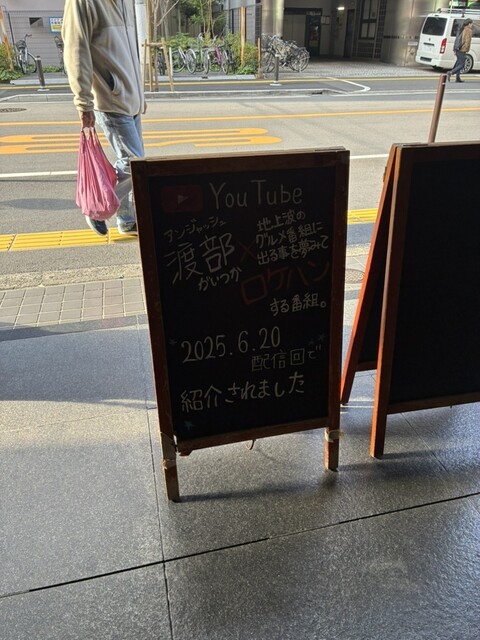 YouTube
アンジャッシュ
渡部
がいつか
×
地上波の
グルメ番組に
出る事を夢みて
ロケハン
する番組。
2025.6.20
配信回で
紹介されました